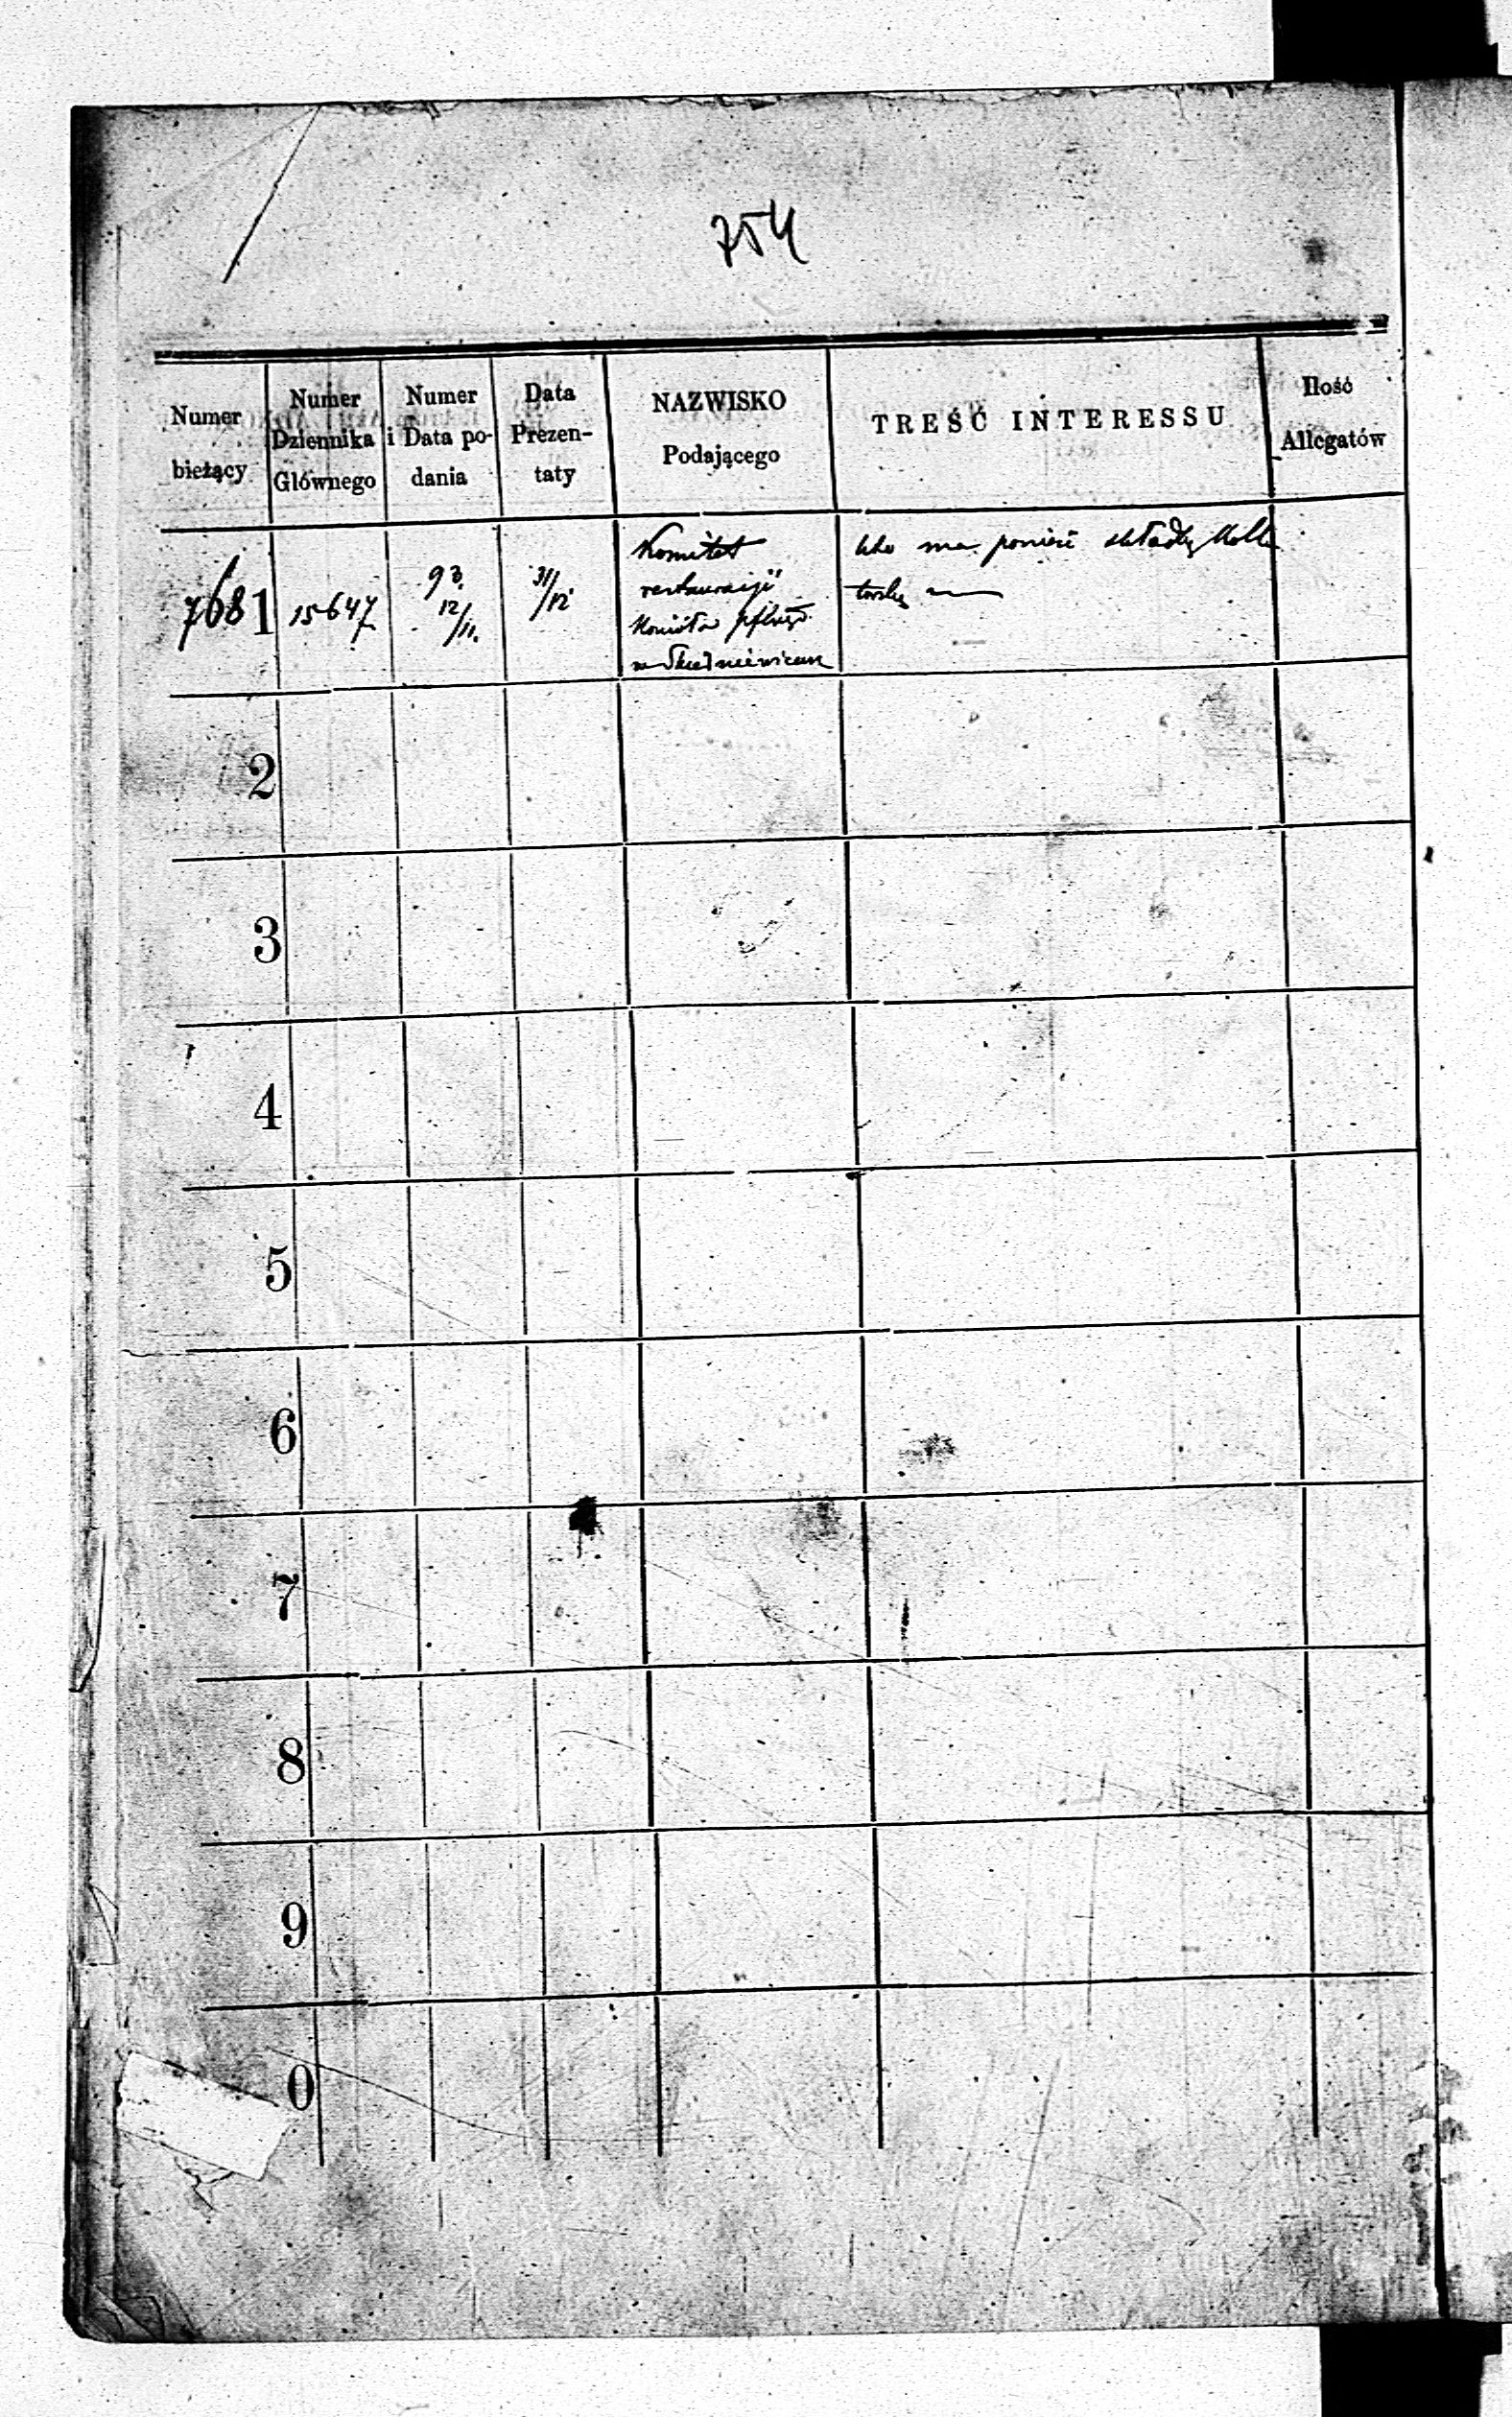 754
Numer bieżący
Numer Dziennika Głównego
Numer i Data podania
Data Prezentaty
NAZWISKO Podającego
TREŚĆ INTERESSU
Ilość Allegatów
7681
15647
93.
12/11.
31/12
Komitet
restauracyi
Kościoła
w Skierniewicach
kto ma ponieść składkę
2
3
4
5
6
7
8
9
0